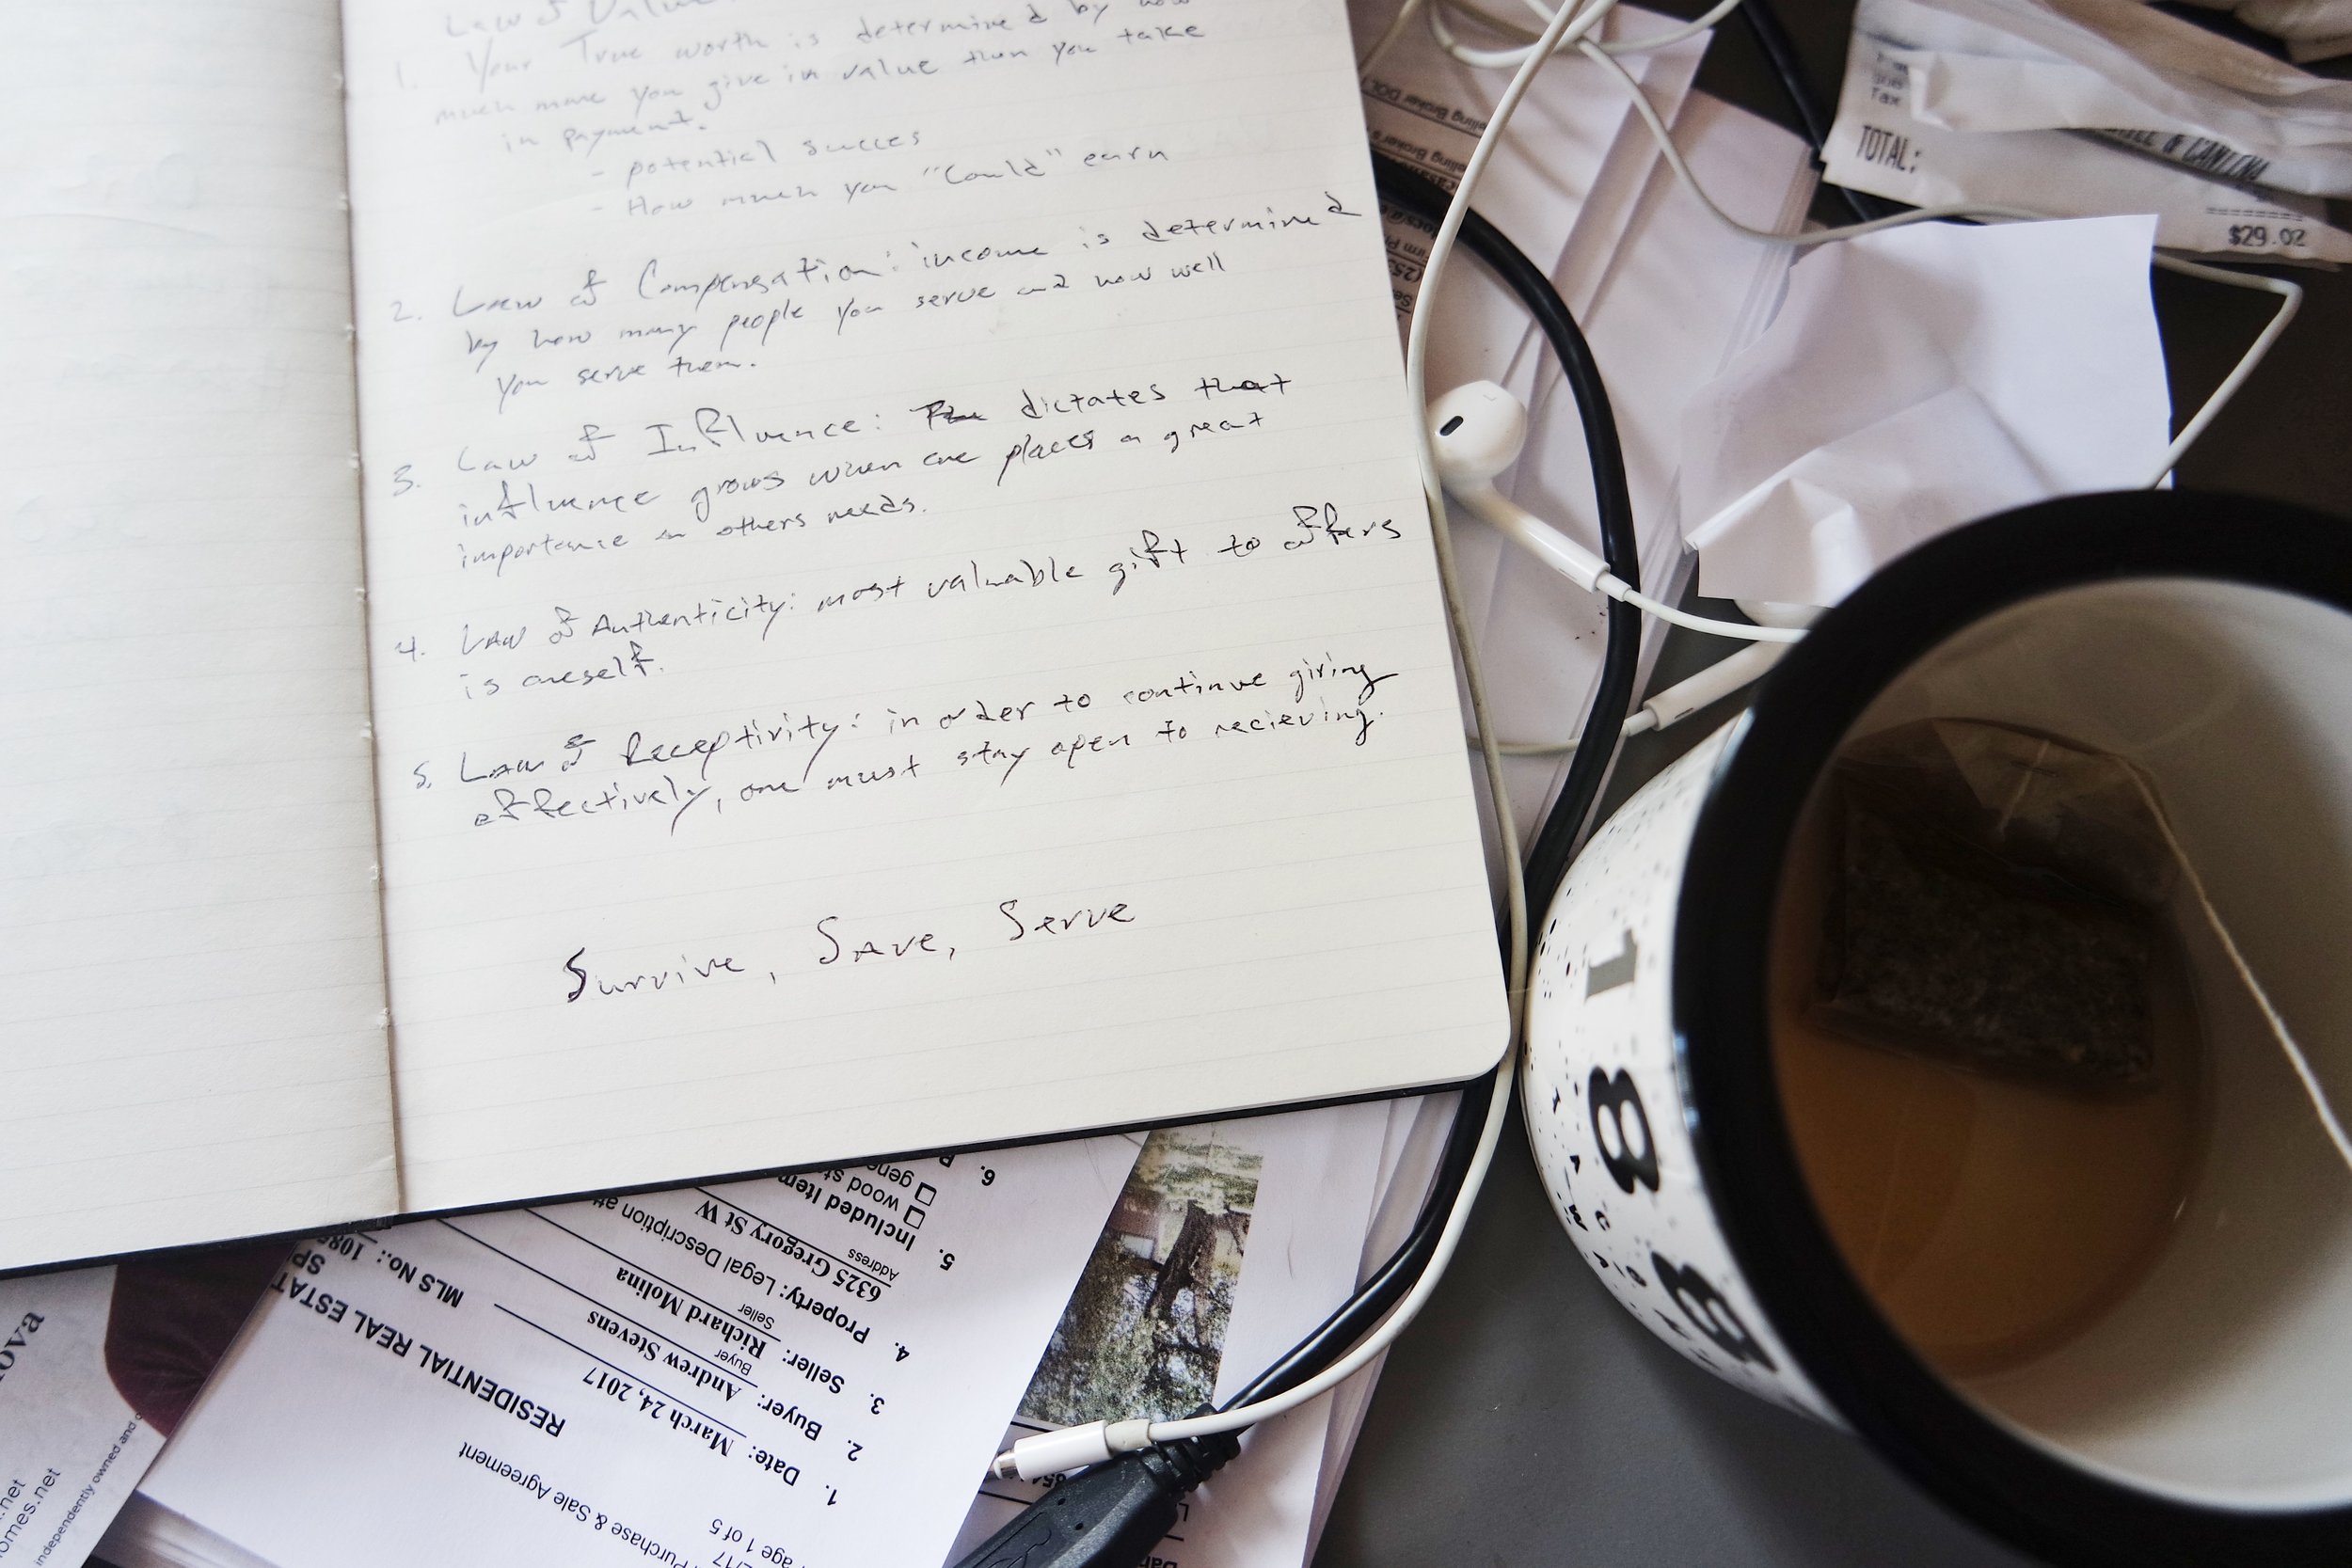 Law of Value
1. Your True worth is determined by how
much more you give in value than you take
in payment.
- potential succes
- How much you "Could" earn
2. Law of Compensation: income is determined
by how many people you serve and how well
you serve them.
3. Law of Influence: dictates that
influence grows when one places a great
importance on others needs.
4. Law of Authenticity: most valuable gift to offers
is oneself.
5. Law of Receptivity: in order to continue giving
effectively, one must stay open to recieving.
Survive, Save, Serve
TOTAL:
& CANTINA
$29.02
Tax
Purchase & Sale Agreement
age 1 of 5
RESIDENTIAL REAL ESTAT
1. Date: March 24, 2017
MLS No.: 1085
2. Buyer: Andrew Stevens
Buyer
3. Seller: Richard Molina
Seller
4. Property: Legal Description att
6325 Gregory St W
Address
5. Included Item
wood st
gene
6.
ova
.net
omes.net
independently owned and o
1
8
3